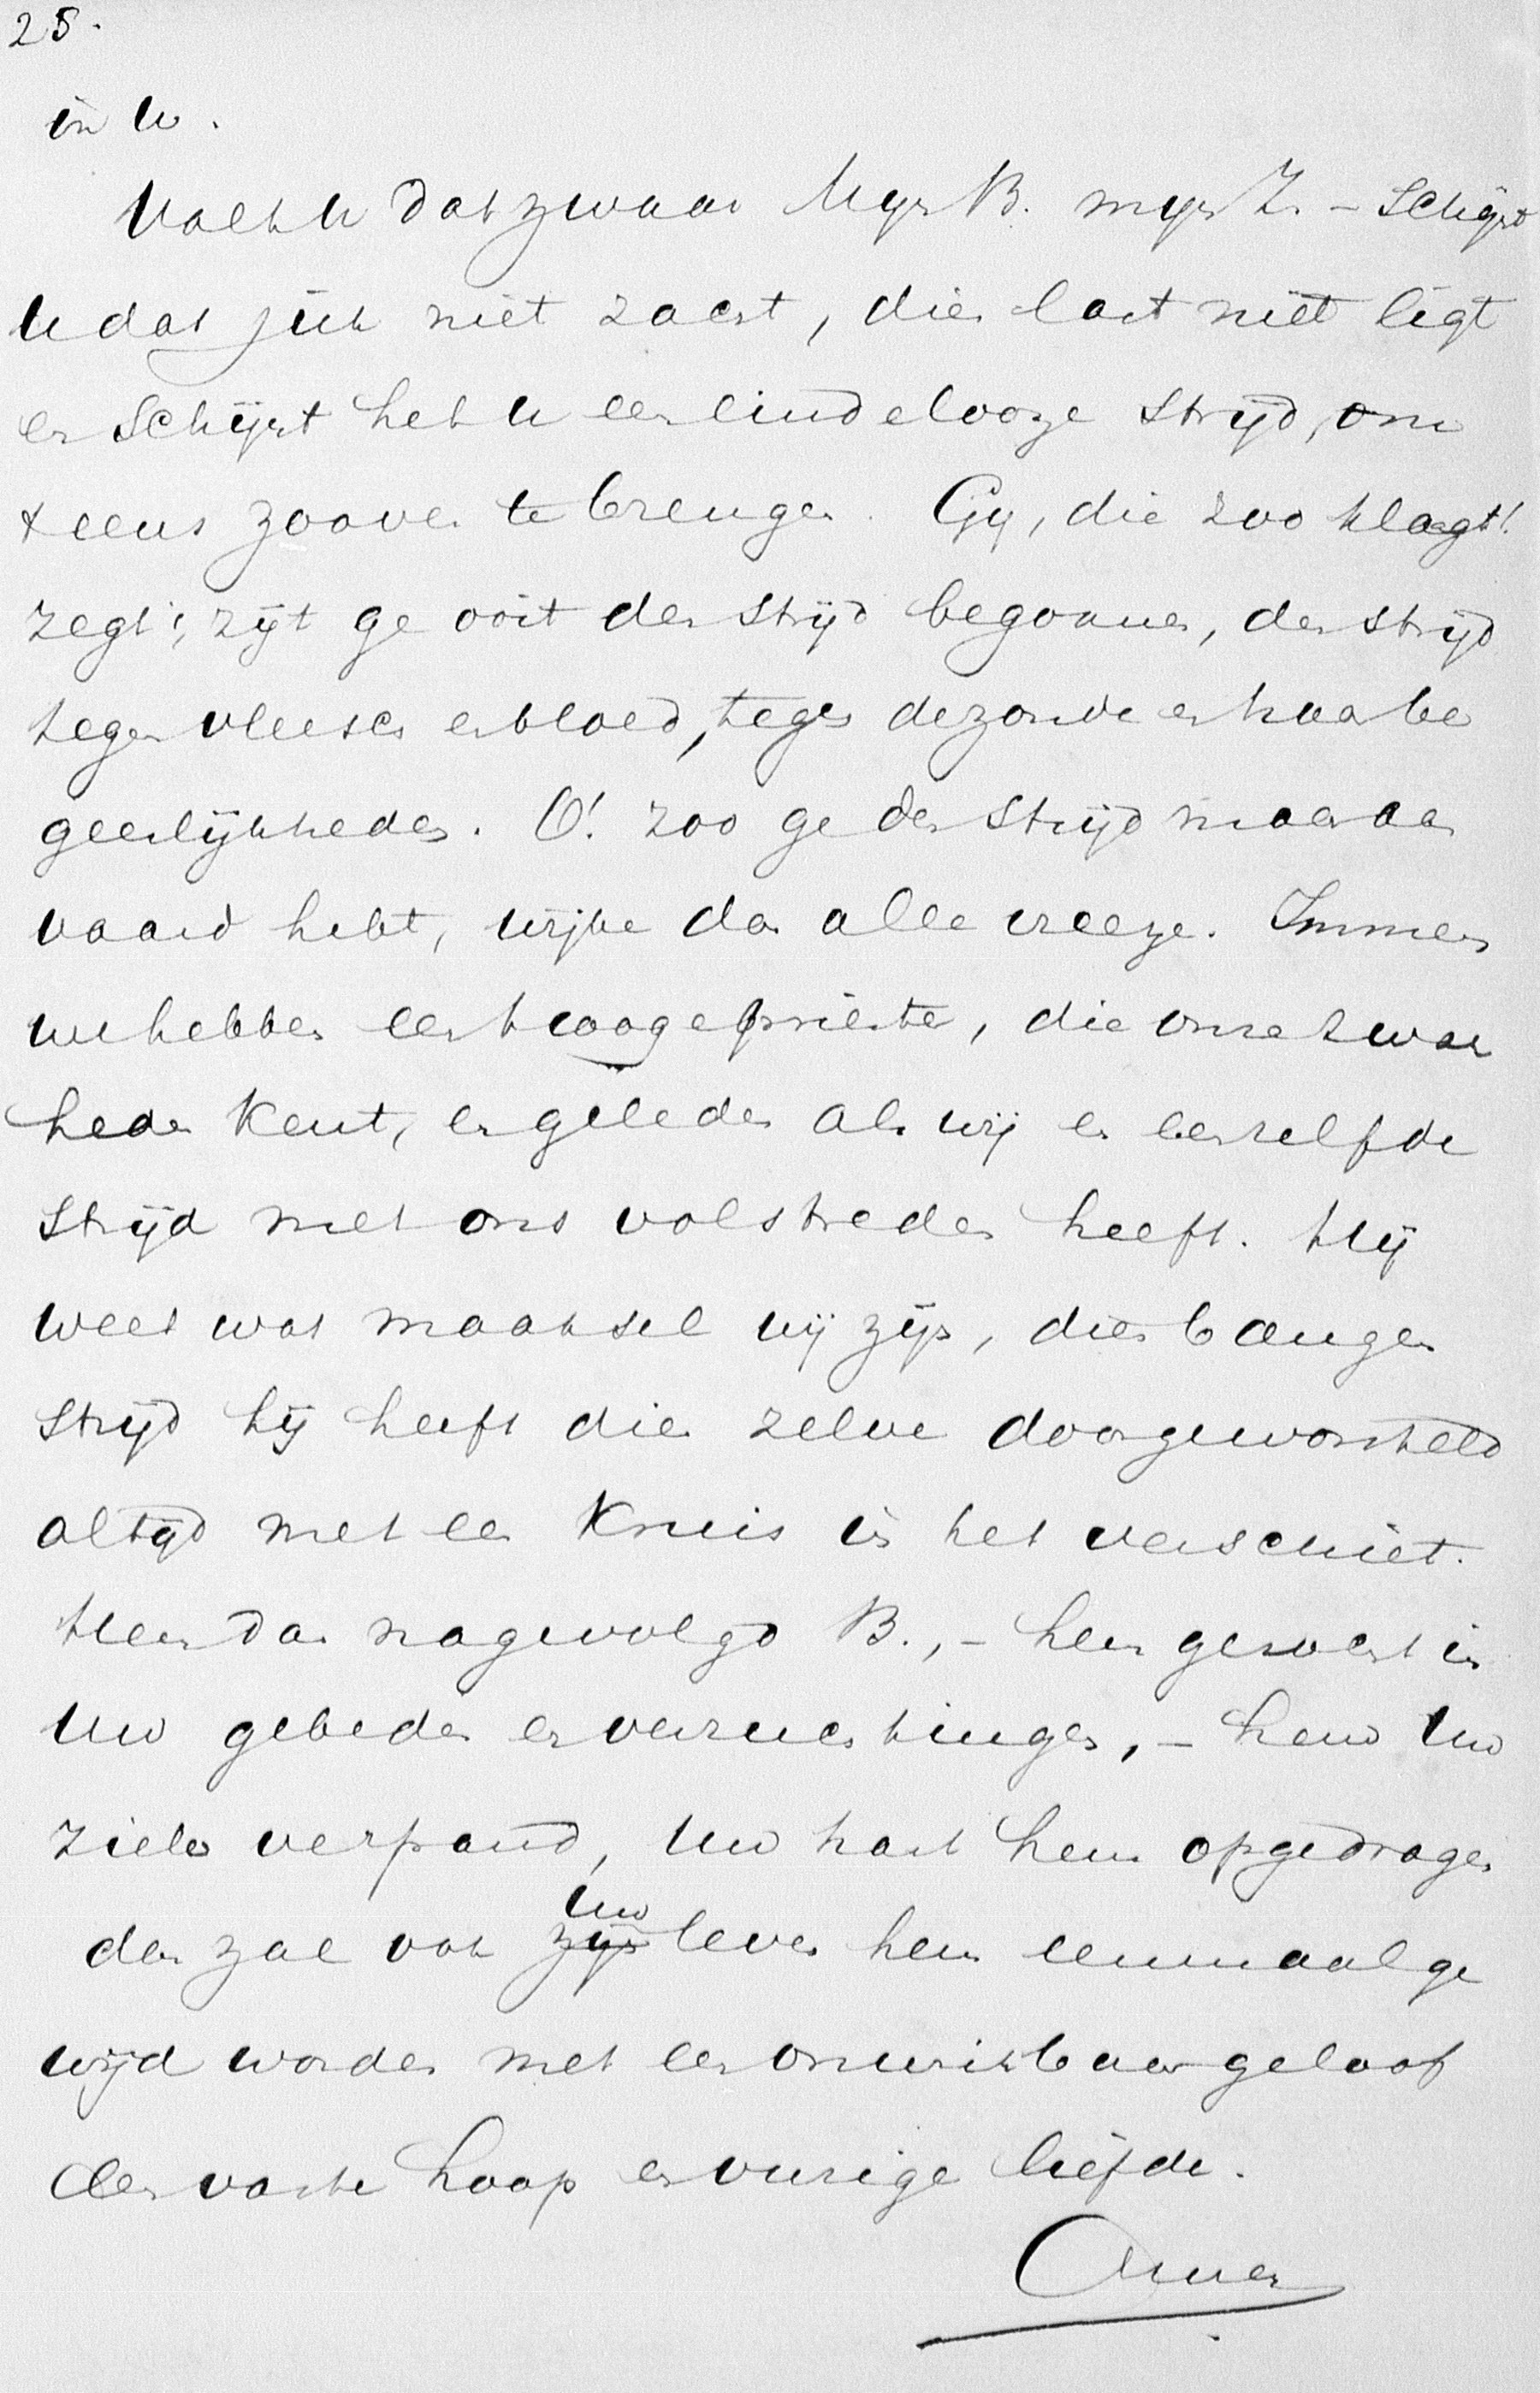 25.
in U.
Valt U dat zwaar Mijn B. mijn Z. – Schijnt
U dat juk niet zacht, die last niet ligt
en Schijnt het U een eindelooze strijd, om
t eens zoover te brengen. Gij, die zoo klaagt!
zegt!, zijt ge ooit den strijd begonnen, den strijd
tegen vleesch en bloed, tegen de zonde en haar be
geerlijkheden. O! zoo ge den Strijd maar aan
vaard hebt, wijke dan alle vreeze. Immers
we hebben een hoogepriester, die onze zwak
heden kent, en geleden als wij en eenzelfde
Strijd met ons volstreden heeft. Hij
weet wat maaksel wij zijn, dien bangen
Strijd hij heeft dien zelve doorgeworsteld
altijd met een Kruis in het verschiet.
Hem dan nagevolgd B., – hem gezocht in
Uw gebeden en verzuchtingen, – hem Uw
ziele verpand, Uw hart hem opgedragen
dan zal ook zijn Uw leven hem eenmaal ge
wijd worden met een onwrikbaar geloof
een vaste hoop en vurige liefde.
Amen